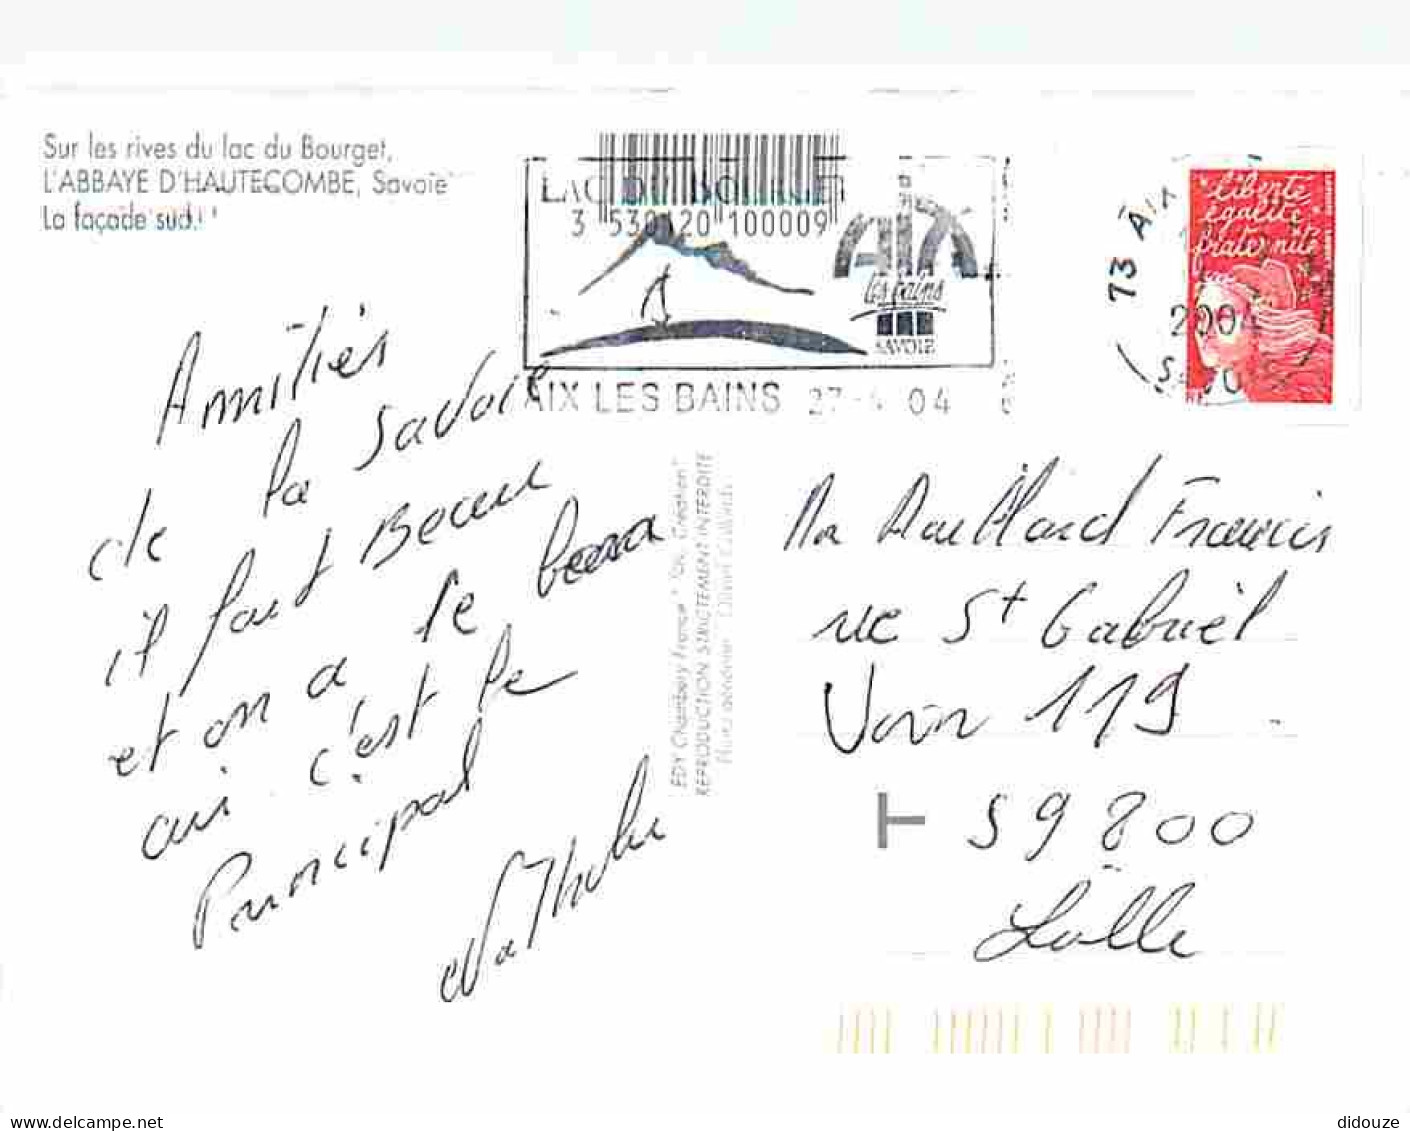 Sur les rives du lac du Bourget,
L'ABBAYE D'HAUTECOMBE, Savoie
La façade sud.
LAC DU BOURGET
3 530120 100009
AIX
les bains
SAVOIE
AIX LES BAINS 27-4 04
73 AIX
2004
liberté
égalité
fraternité
RF
Amitiés
de la Savoie
il fait Beau
et on a le beau
aui c'est le
Principal
EDY Chambéry France
REPRODUCTION STRICTEMENT INTERDITE
Mr Maillard Francis
rue St Gabriel
119
59800
Lille
delcampe.net
didouze